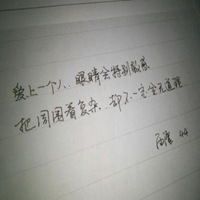 爱上一个人、眼睛会特别敏感
把周围看复杂、却不一定全无道理